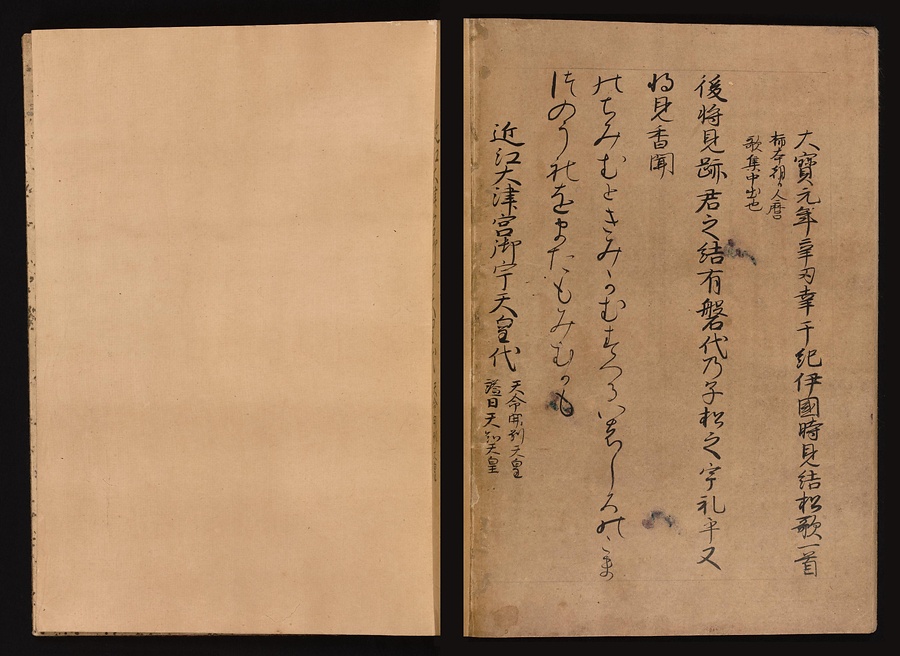 大寶元年辛丑幸于紀伊國時見結松歌一首
柿本朝臣人麿
歌集中出也
後将見跡君之結有磐代乃子松之宇礼乎又
将見香聞
のちみむときみかむすへるいはしろのこま
つのうれをまたもみむかも
近江大津宮御宇天皇代
天命開別天皇
諡曰天智天皇